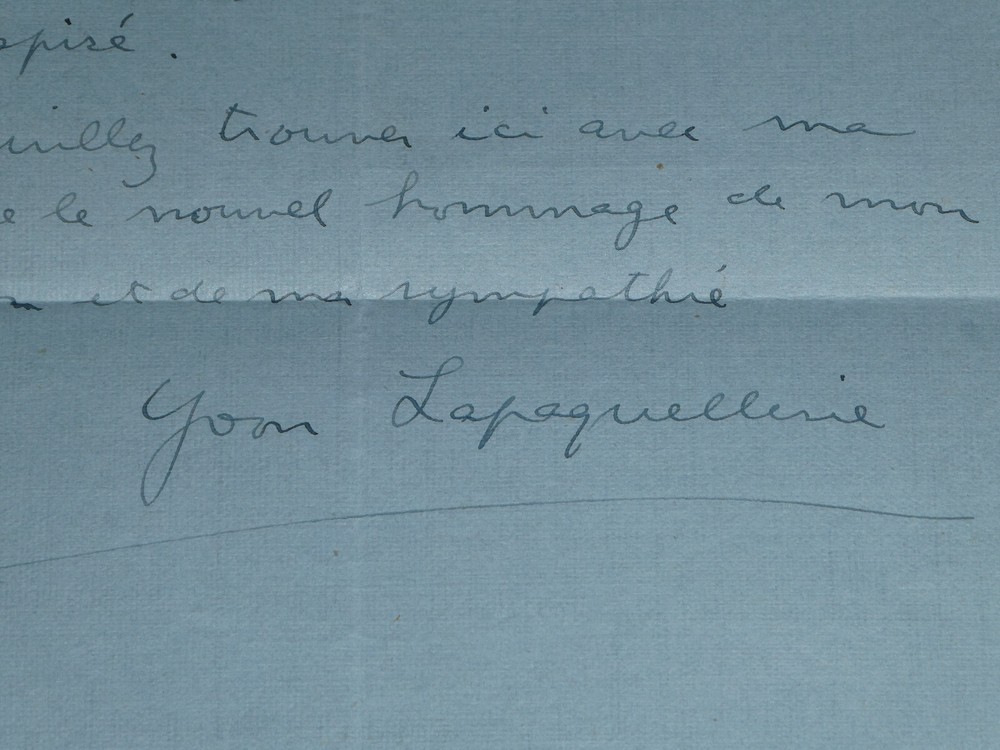 spiré.
uillez trouver ici avec ma
e le nouvel hommage de mon
et de ma sympathie
Yvon Lapaquellerie